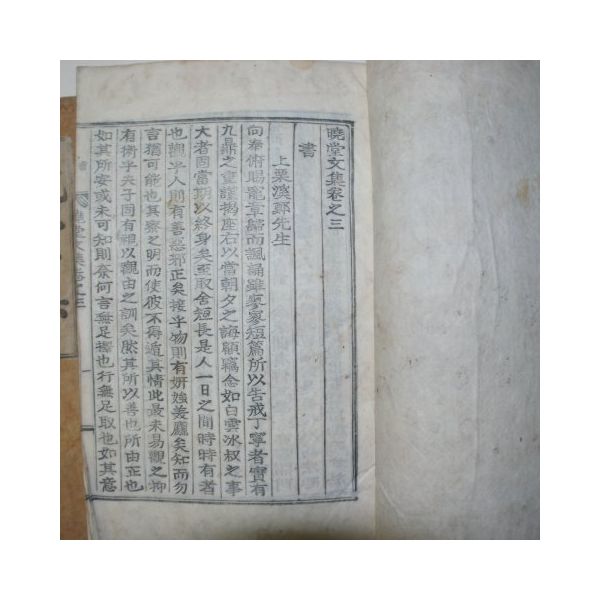 曉堂文集卷之三
書
上栗溪鄭先生
向奉俯賜寵章歸而諷誦雖寥寥短篇所以告戒丁寧者實有
九鼎之重謹揭座右以當朝夕之誨顧竊念如白雲冰叔之事
大者固當期以終身矣至取舍短長是人一日之間時時有者
也觀乎人則有善惡邪正矣接乎物則有妍媸姜麤矣知而勿
言猶可能也其察之明而使彼不得遁其情此最未易觀之抑
有術乎夫子固有視以觀由之訓矣然其所以善也所由正也
如其所安或未可知則奈何言無足擇也行無足取也如其意
堂文集卷之三